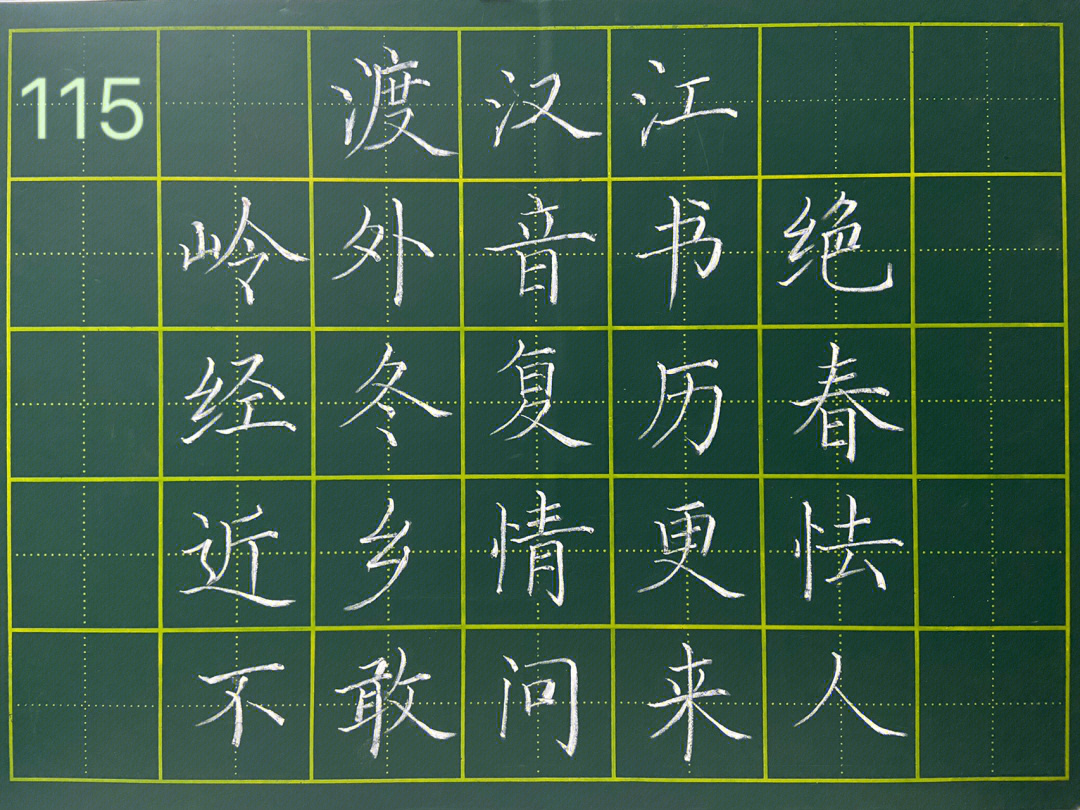 115
渡汉江
岭外音书绝
经冬复历春
近乡情更怯
不敢问来人